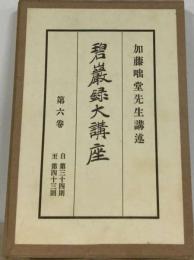 加藤咄堂先生講述
碧巖録大講座
第六卷
自第三十四則
至第四十三則